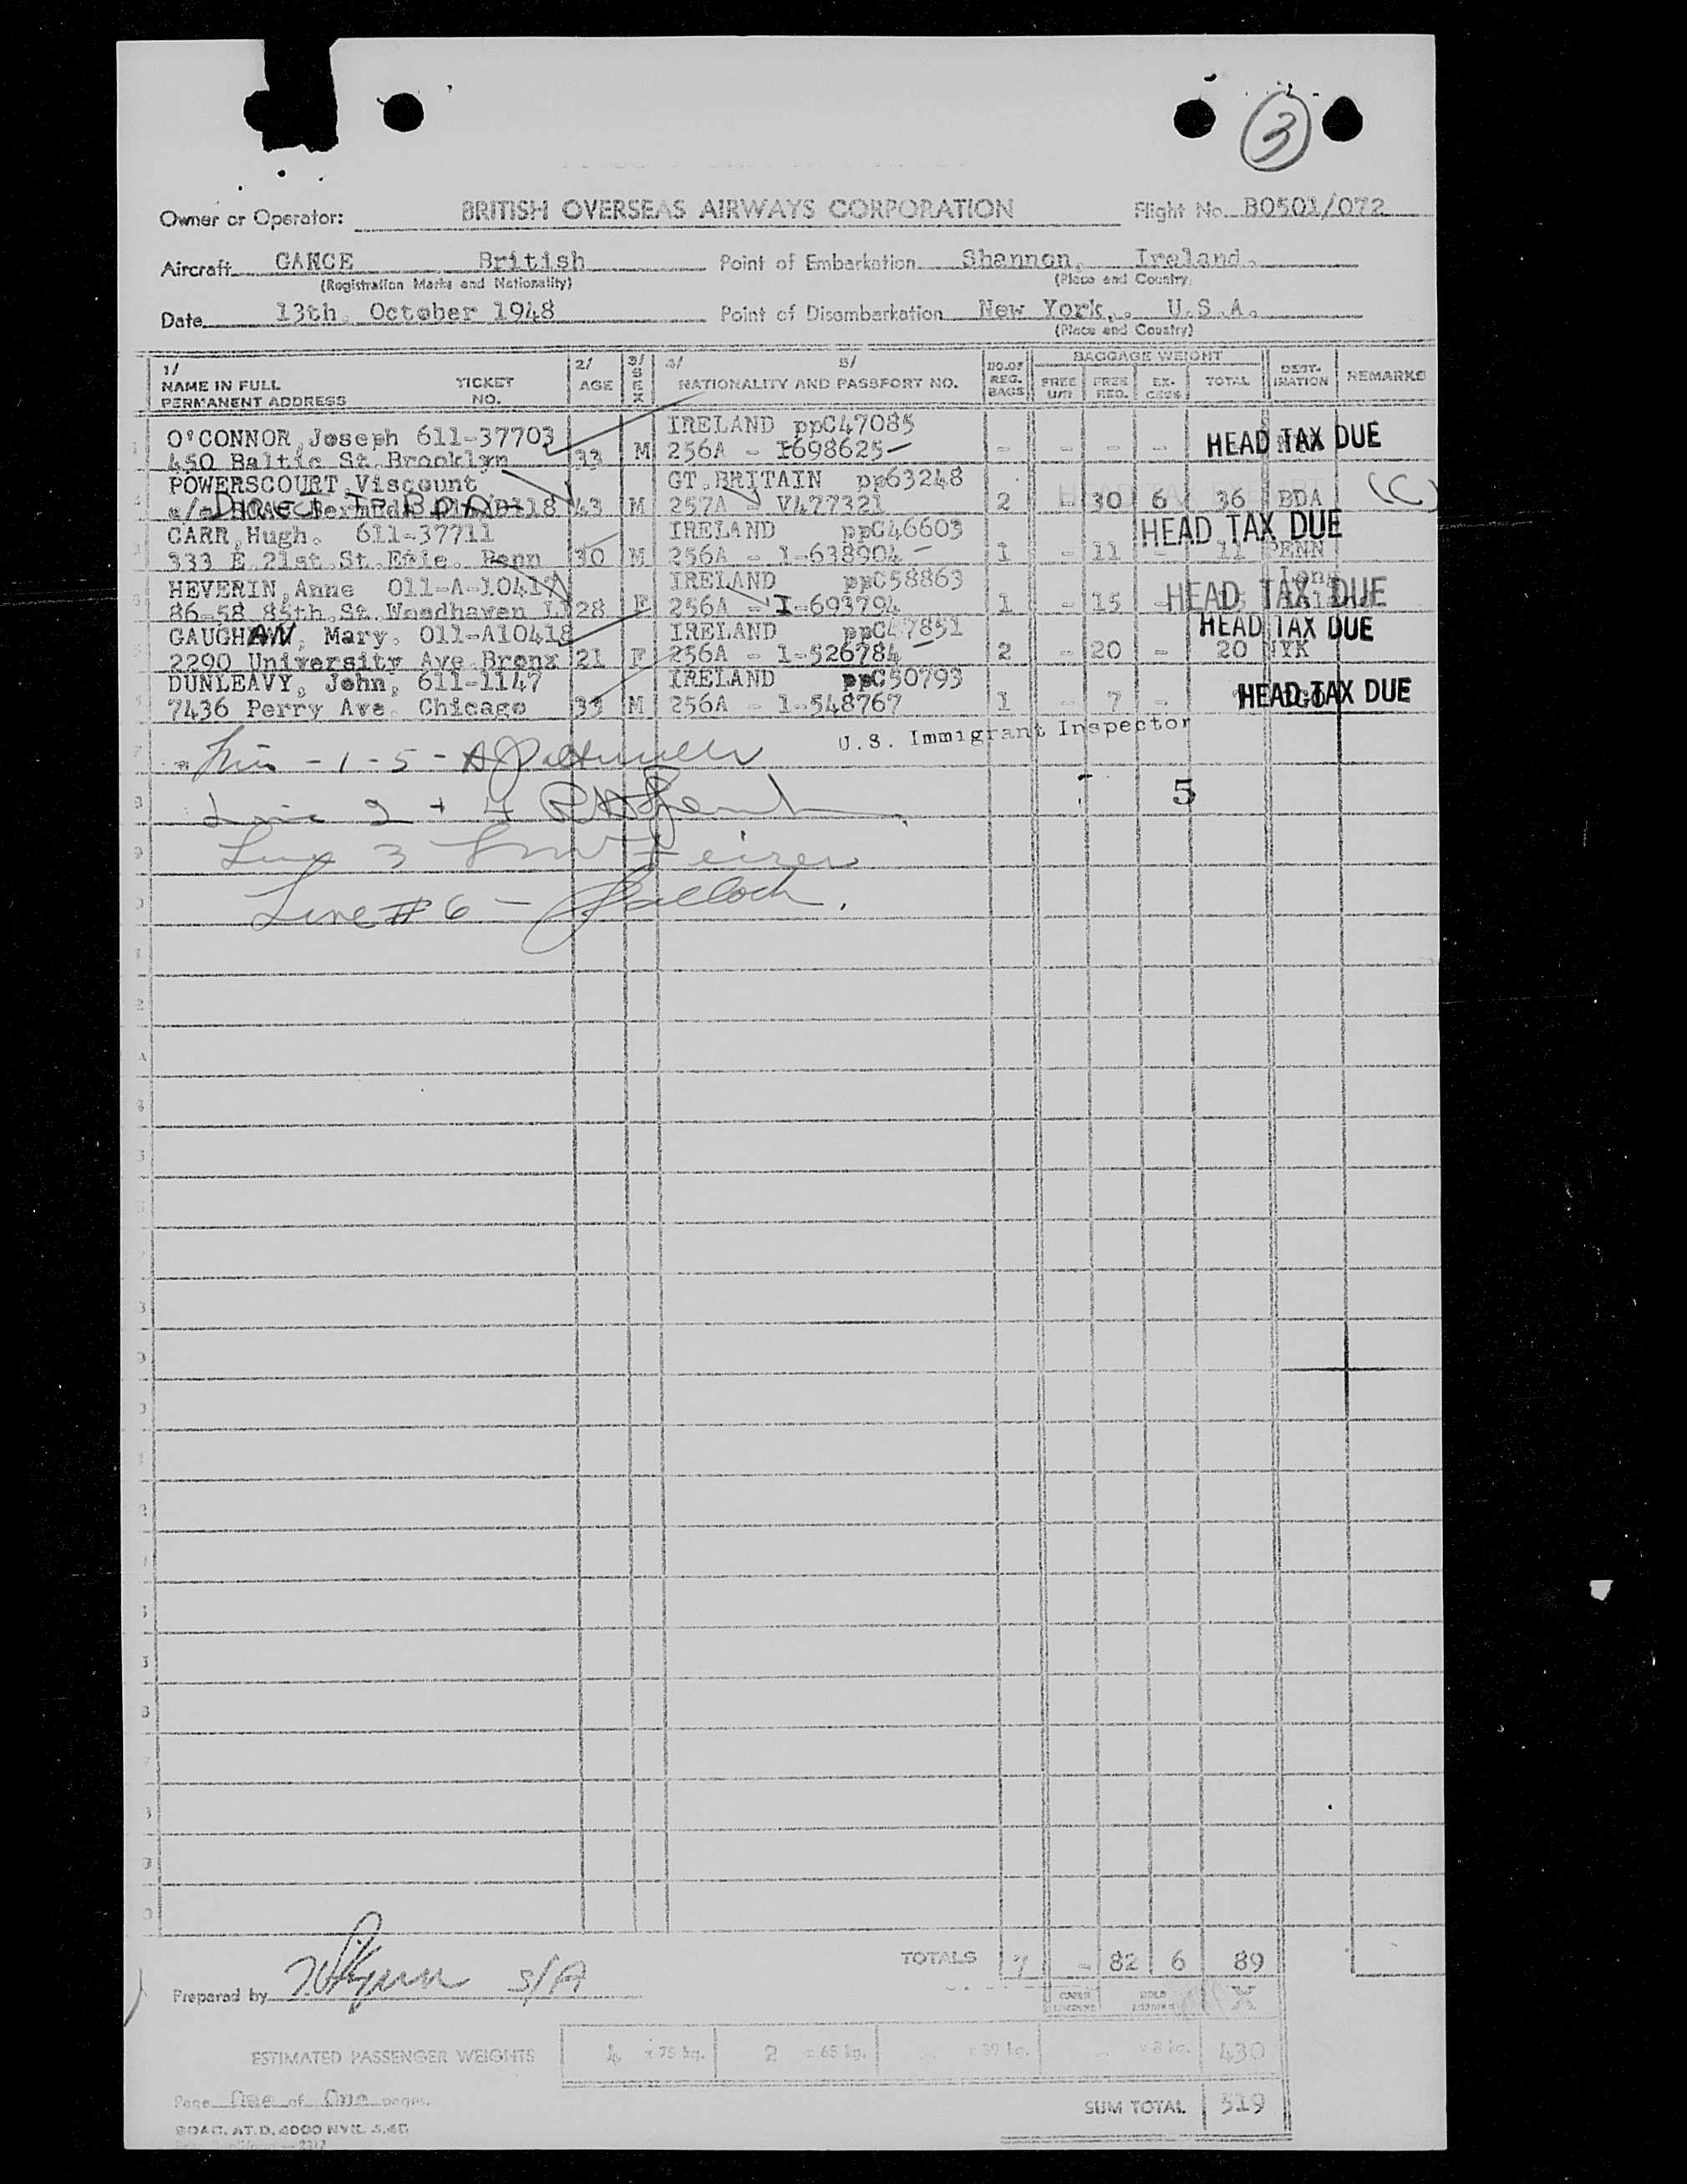 3
Owner or Operator: BRITISH OVERSEAS AIRWAYS CORPORATION Flight No. BO501/072
Aircraft GAKCE British Point of Embarkation Shannon, Ireland.
(Registration Marks and Nationality) (Place and Country)
Date 13th, October 1948 Point of Disembarkation New York,. U.S.A.
(Place and Country)
1/ NAME IN FULL TICKET NO. PERMANENT ADDRESS 2/ AGE 3/ SEX 4/ 5/ NATIONALITY AND PASSPORT NO. NO.OF REG. BAGS BAGGAGE WEIGHT FREE U/T FREE REG. EX-CESS TOTAL DEST-INATION REMARKS
O'CONNOR, Joseph 611-37703 IRELAND ppC47085
450 Baltic St. Brooklyn 33 M 256A - I698625 - - - - HEAD TAX DUE
POWERSCOURT, Viscount GT.BRITAIN pp63248
43 M 257A - V477321 2 - 30 6 36 BDA (C)
CARR, Hugh. 611-37711 IRELAND ppC46603 HEAD TAX DUE
333 E.21st.St.Erie. Penn 30 M 256A - I-638904 1 - 11 - 11 PENN
HEVERIN, Anne 011-A-10417 IRELAND ppC58863 Long
86-58 85th.St.Woodhaven LI 28 F 256A - I-693794 1 - 15 - HEAD TAX DUE
GAUGHAN, Mary. 011-A10418 IRELAND ppC47851 HEAD TAX DUE
2290 University Ave.Bronx 21 F 256A - I-526784 2 - 20 - 20 NYK
DUNLEAVY, John, 611-1147 IRELAND ppC50793
7436 Perry Ave. Chicago 33 M 256A - I-548767 1 - 7 - HEAD TAX DUE
U.S. Immigrant Inspector
- 1 - 5 -
5
Line 2 + 4
Line 3
Line # 6 -
TOTALS 7 - 82 6 89
Prepared by S/A
X
ESTIMATED PASSENGER WEIGHTS 4 x 75 kg. 2 x 65 kg. x 39 kg. x 8 kg. 430
Page One of One pages.
SUM TOTAL 519
BOAC. AT.D. 4000 NYK.